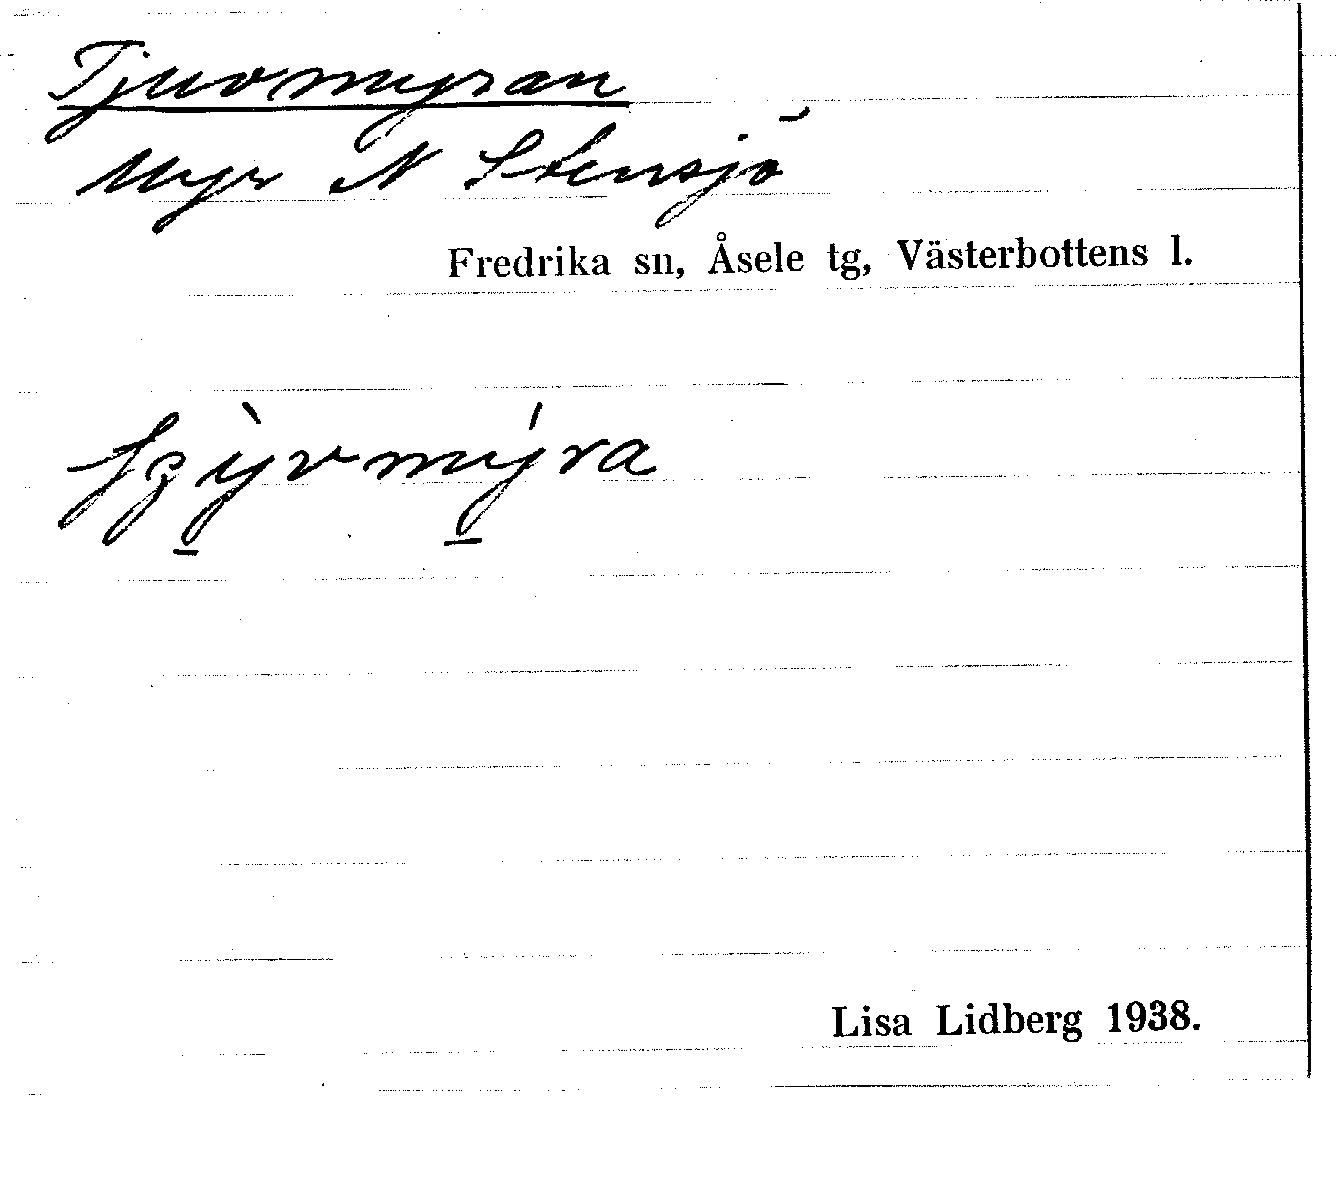 Tjuvmyran
Myr N Stensjö
Fredrika sn, Åsele tg, Västerbottens l.
Lisa Lidberg 1938.